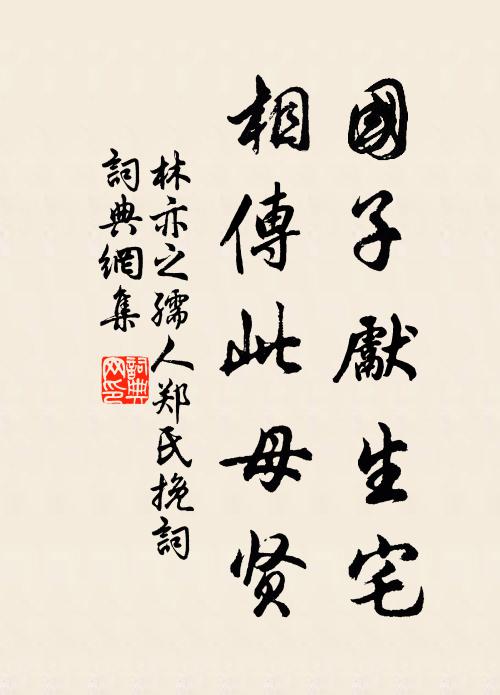 國子獻生宅
相傳此母贤
林亦之孺人郑氏挽詞
詞典網集
詞典网印